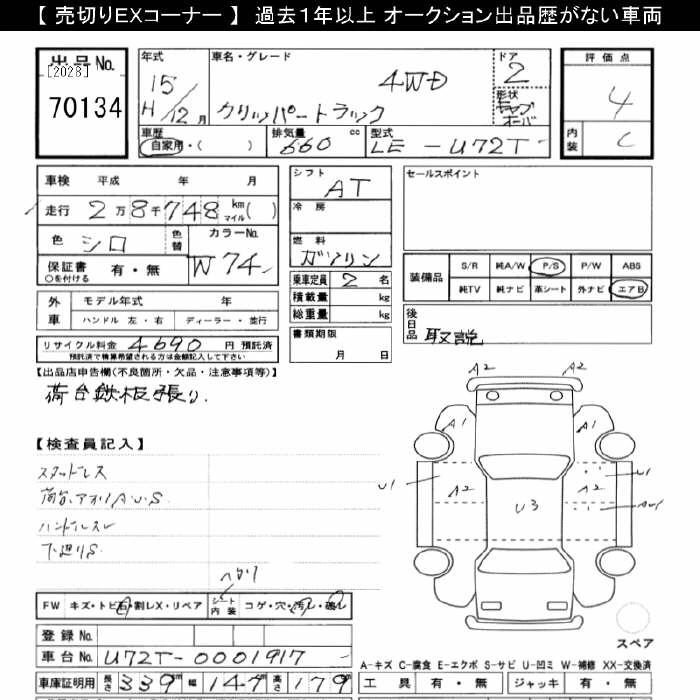 【 売切りEXコーナー 】 過去1年以上 オークション出品歴がない車両
出品No.
[2028]
70134
年式
15/
H/12月
車名・グレード
4WD
クリッパートラック
ドア
2
形状
キャブオーバ
評価点
4
内装
C
車歴
自家用・( )
排気量 cc
660
型式
LE-U72T
車検 平成 年 月
走行 2万8千748 km マイル( )
色 シロ 色替
カラーNo.
W74
保証書 有・無
○を付ける
シフト
AT
冷房
燃料
ガソリン
乗車定員 2 名
積載量 kg
総重量 kg
書類期限
月 日
セールスポイント
装備品
S/R 純A/W P/S P/W ABS
純TV 純ナビ 革シート 外ナビ エアB
後日品
取説
外車
モデル年式 年
ハンドル 左・右 ディーラー・並行
リサイクル料金 4690 円 預託済
預託済で精算希望される方は金額記入して下さい
【出品店申告欄(不良箇所・欠品・注意事項等)】
荷台鉄板張り.
【検査員記入】
スタッドレス
荷台、アオリA.U.S.
ハンドルスレ
下廻りS
A2 A2
A1 A1
U1 A2 U3 A2 U1
スペア
ヘタリ
FW キズ・トビ石・割レX・リペア シート内装 コゲ・穴・汚レ・破レ
登録No.
車台No. U72T-0001917
車庫証明用 長さ 339 幅 147 高さ 179
A-キズ C-腐食 E-エクボ S-サビ U-凹ミ W-補修 XX-交換済
工具 有・無 ジャッキ 有・無